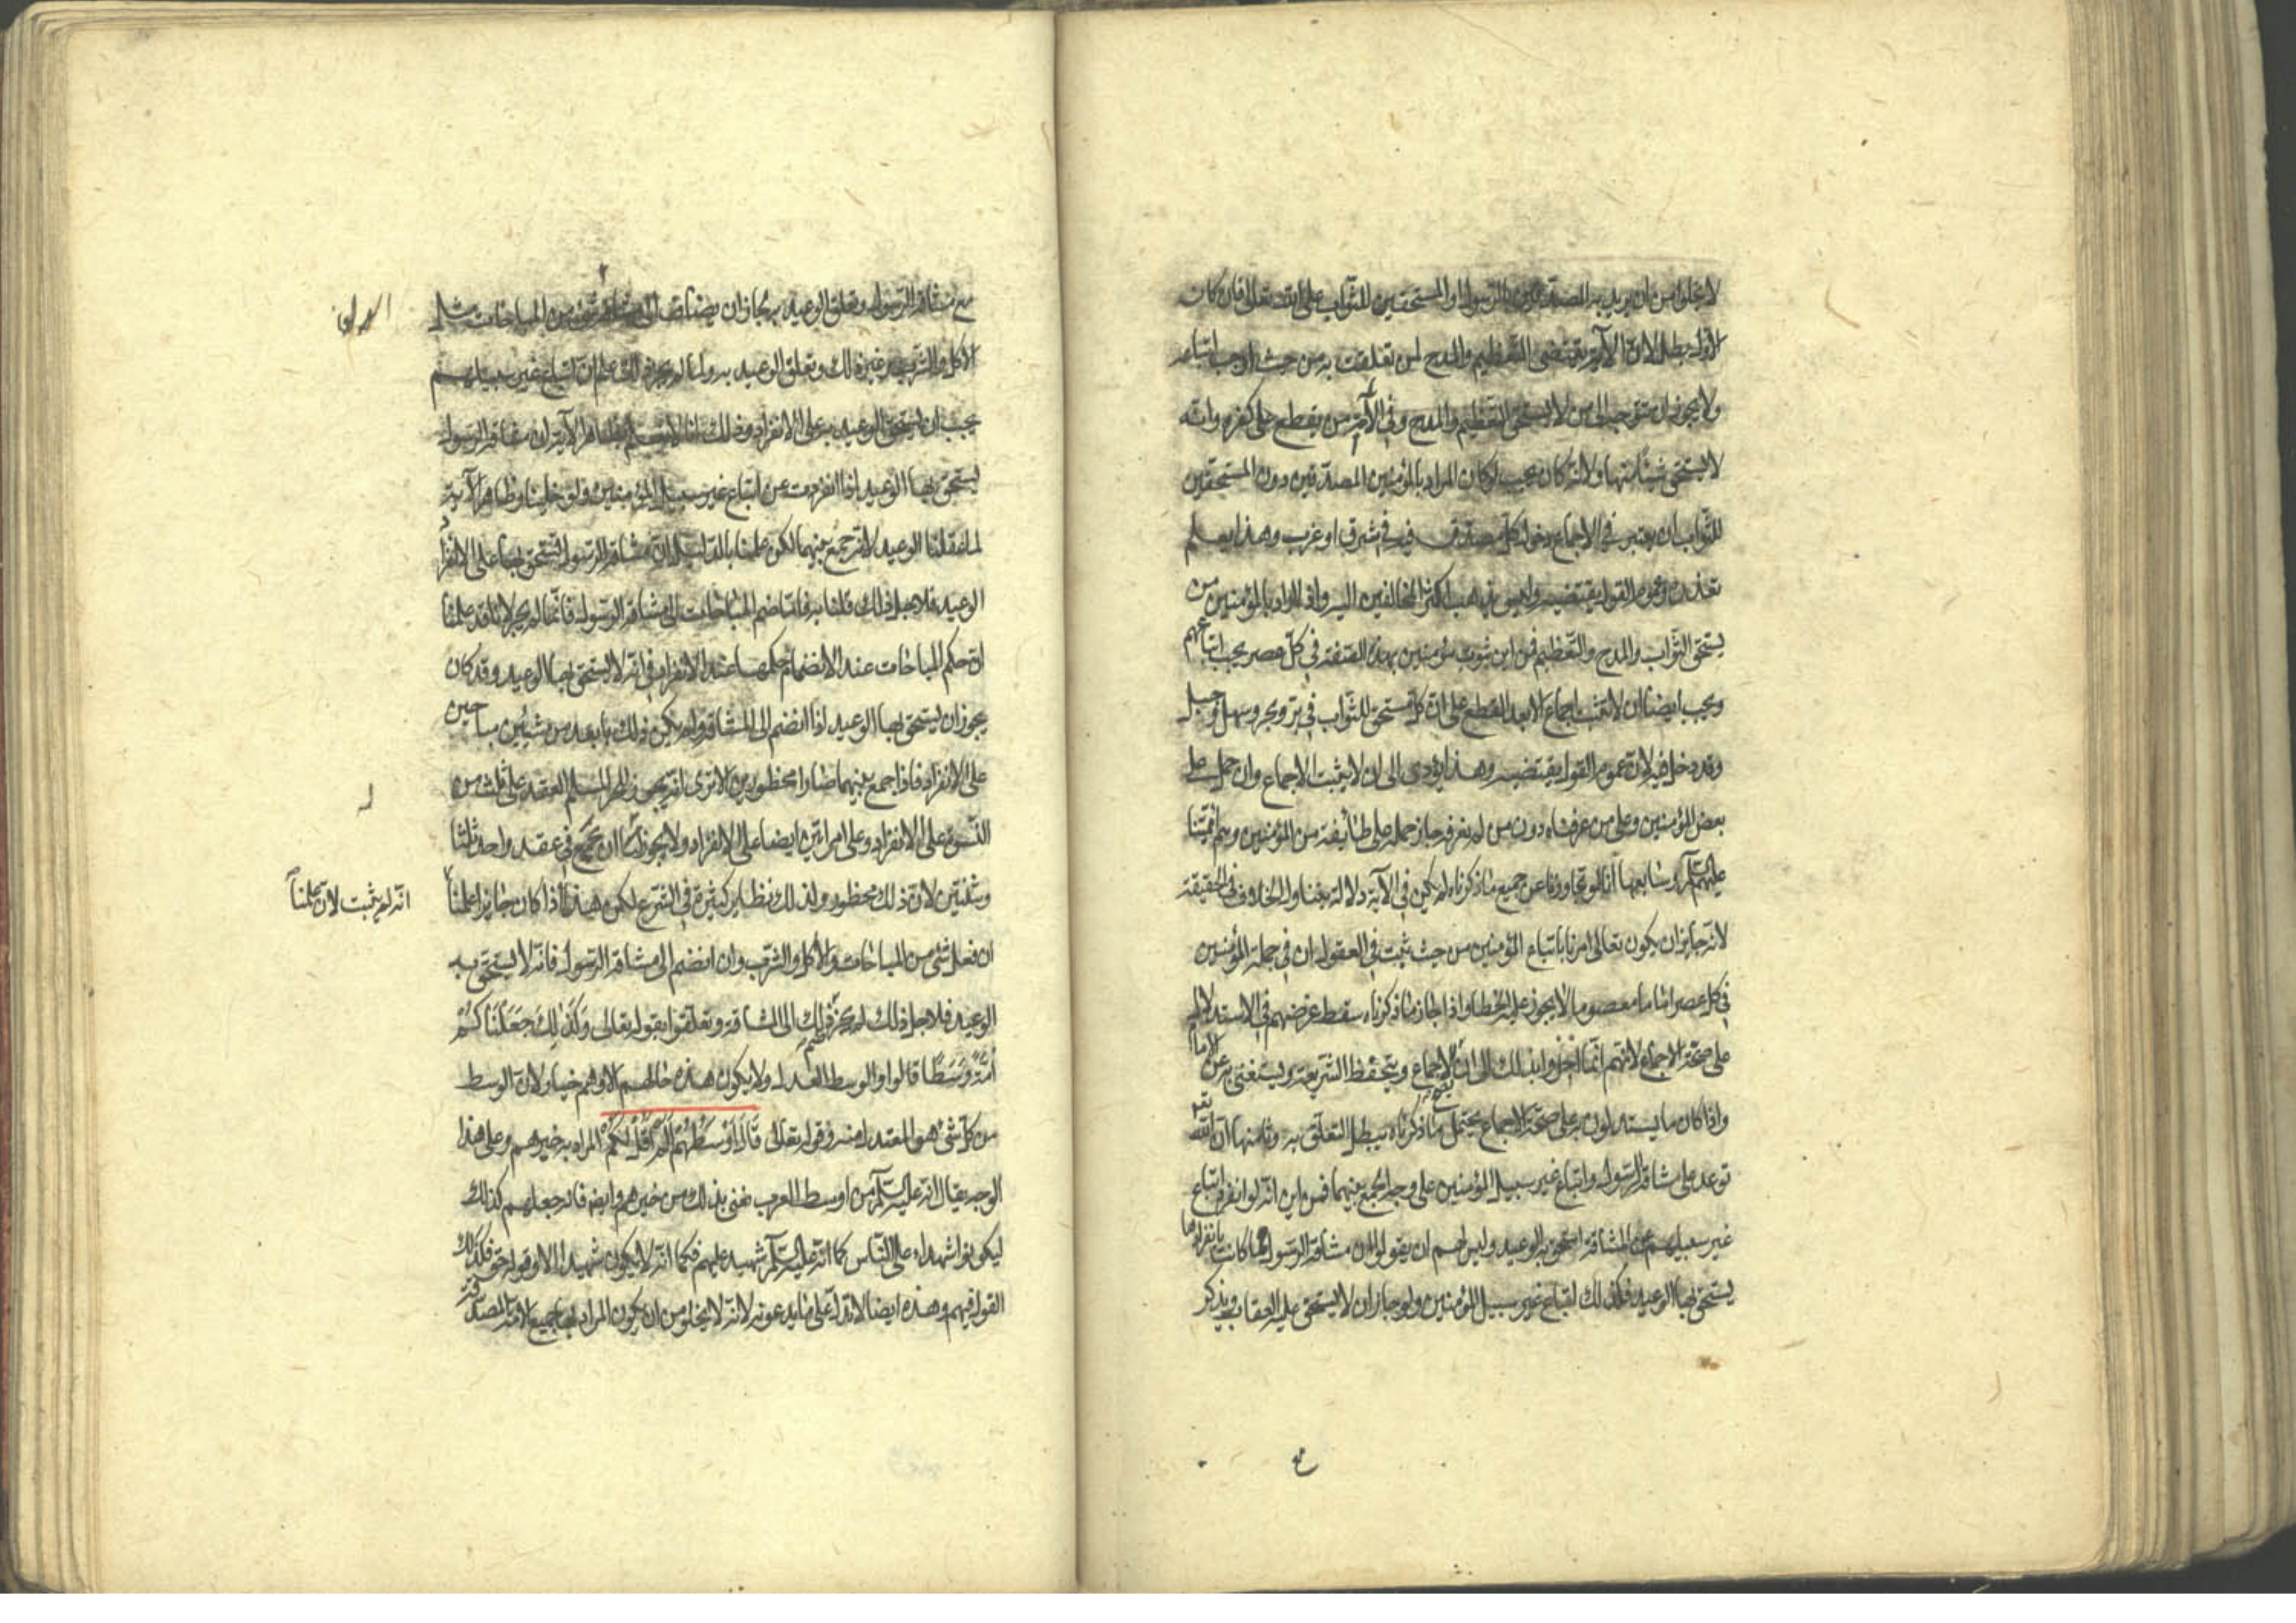 لا يخلوا من ان يريد به المصدقين بالرسول او المستحقين للثواب على الله تعالى فان كان
الاول بطل لان الآية يقتضى التعظيم والمدح لمن تعلقت به من حيث اوجب اتباعه
ولا يجوز ان يتوجه الى من لا يستحق التعظيم والمدح وفى الأمة من يقطع على كفره وانه
لا يستحق شيئا منها ولانه كان يجب لو كان المراد بالمؤمنين المصدقين دون المستحقين
للثواب ان يعتبر فى الاجماع دخول كل مصدق فى شرق او غرب وهذا يعلم
تعذره وعموم القول يقتضيه وليس يذهب اكثر المخالفين اليه وان اراد بالمؤمنين من
يستحق الثواب والمدح والتعظيم فمن اين ثبوت مؤمنين بهذه الصفة فى كل عصر يجب اتباعهم
ويجب ايضا ان لا يثبت اجماع الا بعد القطع على ان كل مستحق للثواب فى بر وبحر وسهل وجبل
وقد دخل فيه لان عموم القول يقتضيه وهذا يؤدى الى ان لا يثبت الاجماع وان حمل على
بعض المؤمنين وعلى من عرفناه دون من لم نعرفه جاز حمله على طائفة من المؤمنين وهم ائمتنا
عليهم السلام وسابعها انا لو تجاوزنا عن جميع ما ذكرناه لم يكن فى الآية دلالة تتناول الخلاف فى الحقيقة
لانه جايز ان يكون تعالى امرنا باتباع المؤمنين من حيث ثبت فى العقول ان فى جملة المؤمنين
فى كل عصر اماما معصوما لا يجوز عليه الخطا واذا جاز ما ذكرناه سقط غرضهم فى الاستدلال
على صحة الاجماع لانهم انما اجروا بذلك الى ان الاجماع ويتحفظ الشريعة ويستغنى به عن الامام
واذا كان ما يستدلون به على صحة الاجماع يحتمل ما ذكرناه بطل التعلق به وثامنها ان الله تعه
توعد على مشاقة الرسول واتباع غير سبيل المؤمنين على وجه الجمع بينهما فمن اين انه لو انفرد اتباع
غير سبيلهم عن المشاقة استحق به الوعيد وليس لهم ان يقولوا ان مشاقة الرسول لما كانت بانفرادها
يستحق بها الوعيد فكذلك اتباع غير سبيل المؤمنين ولو جاز ان لا يستحق عليه العقاب ويذكر
مع مشاقة الرسول وتعلق الوعيد به لجاز ان يضاف الى مشاقته شئ من المباحات مثل
الاكل والشرب وغير ذلك وتعلق الوعيد به ولما لم يجز ذلك علم ان اتباع غير سبيلهم
يجب ان يستحق الوعيد به على الانفراد وذلك انا لا نسلم بظاهر الآية ان مشاقة الرسول
يستحق بها الوعيد اذا انفردت عن اتباع غير سبيل المؤمنين ولو خلينا وظاهر الآية
لما عقلنا الوعيد الا بجمع بينهما لكن علمنا بالدليل ان مشاقة الرسول يستحق بها على الانفراد
الوعيد فلاجل ذلك قلنا به فاما ضم المباحات الى مشاقة الرسول فانما لم يجز لانا قد علمنا
ان حكم المباحات عند الانضمام حكمها عند الانفراد فى انه لا يستحق بها الوعيد وقد كان
يجوز ان يستحق بها الوعيد اذا انضم الى المشاقة ولم يكن ذلك بابعد من شيئين مباحين
على الانفراد فاذا جمع بينهما صارا محظورين الا ترى انه يجوز للحر المسلم العقد على ثلث من
النسوة على الانفراد وعلى امراتين ايضا على الانفراد ولا يجوز ان يجمع فى عقد واحد ثلثا
وثنتين لان ذلك محظور ولذلك نظاير كثيرة فى الشرع لكن هذا اذا كان جايزا علمنا
انه لم يثبت لان علمنا
ان فعل شئ من المباحات والاكل والشرب وان انضم الى مشاقة الرسول فانه لا يستحق به
الوعيد فلاجل ذلك لم يجز ضم ذلك الى المشاقة وتعلقوا بقوله تعالى وَكَذٰلِكَ جَعَلْنَاكُمْ
أُمَّةً وَسَطًا قالوا والوسط العدل ولا يكون هذه حالهم الا وهم خيار لان الوسط
من كل شئ هو المعتدل منه وقوله تعالى قَالَ أَوْسَطُهُمْ أَلَمْ أَقُلْ لَكُمْ المراد به خيرهم وعلى هذا
الوجه يقال انه عليه السلام من اوسط العرب نعنى بذلك من خيرهم وايضا فانه جعلهم كذلك
ليكونوا شهداء على الناس كما انه عليه السلام شهيد عليهم فكما انه لا يكون شهيدا الا وقوله حق فكذلك
القول فيهم وهذه ايضا لا تدل على ما يدعونه لانه لا يخلو من ان يكون المراد بها جميع الامة المصدقة